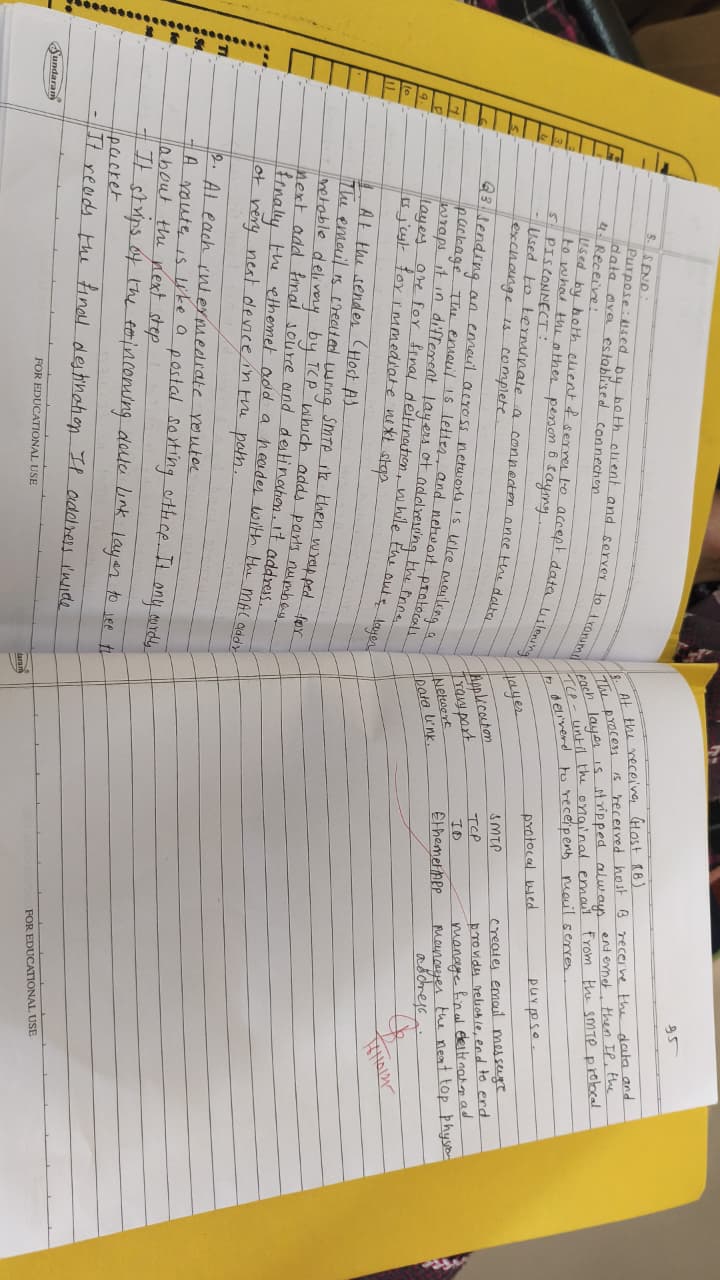 3. SEND:
Purpose: Used by both client and server to transmi
data over establised connection
4. Receive:
Used by both client & server to accept data listening
to what the other person is saying.
5. DISCONNECT:
- Used to terminate a connection once the data
exchange is complete.
Q3. Sending an email across networks is like mailing a
package. The email is letter, and networt protocals
wraps it in different layers of addressing the inne
layers are for final destination, while the oute layer
is just for immediate next stop
1. At the sender (Host A)
The email is created using SMTP it then wrapped for
reliable delivery by TCP which adds parts number,
next add final source and destination. If address.
finally the ethernet add a header with the MAC addr
of very next device in the path.
2. At each intermediate router
- A route is like a postal sorting office. It only
about the next step
- It strips of the incoming data link layer to see t
packet
- It reads the final destination IP address inside
Sundaram
FOR EDUCATIONAL USE
95
3. At the receiver (Host B)
The process is received host B receive the data and
each layer is stripped always enternet, then IP, the
TCP - until the original email from the SMTP protocal
is deliverd to receipents mail server
layer protocal used purpose.
Application SMTP creates email message
Transport TCP provides reliable, end to end
Network IP manage final destination ad
Data link. Ethernet/PP manages the next top physica
address.
daram
FOR EDUCATIONAL USE